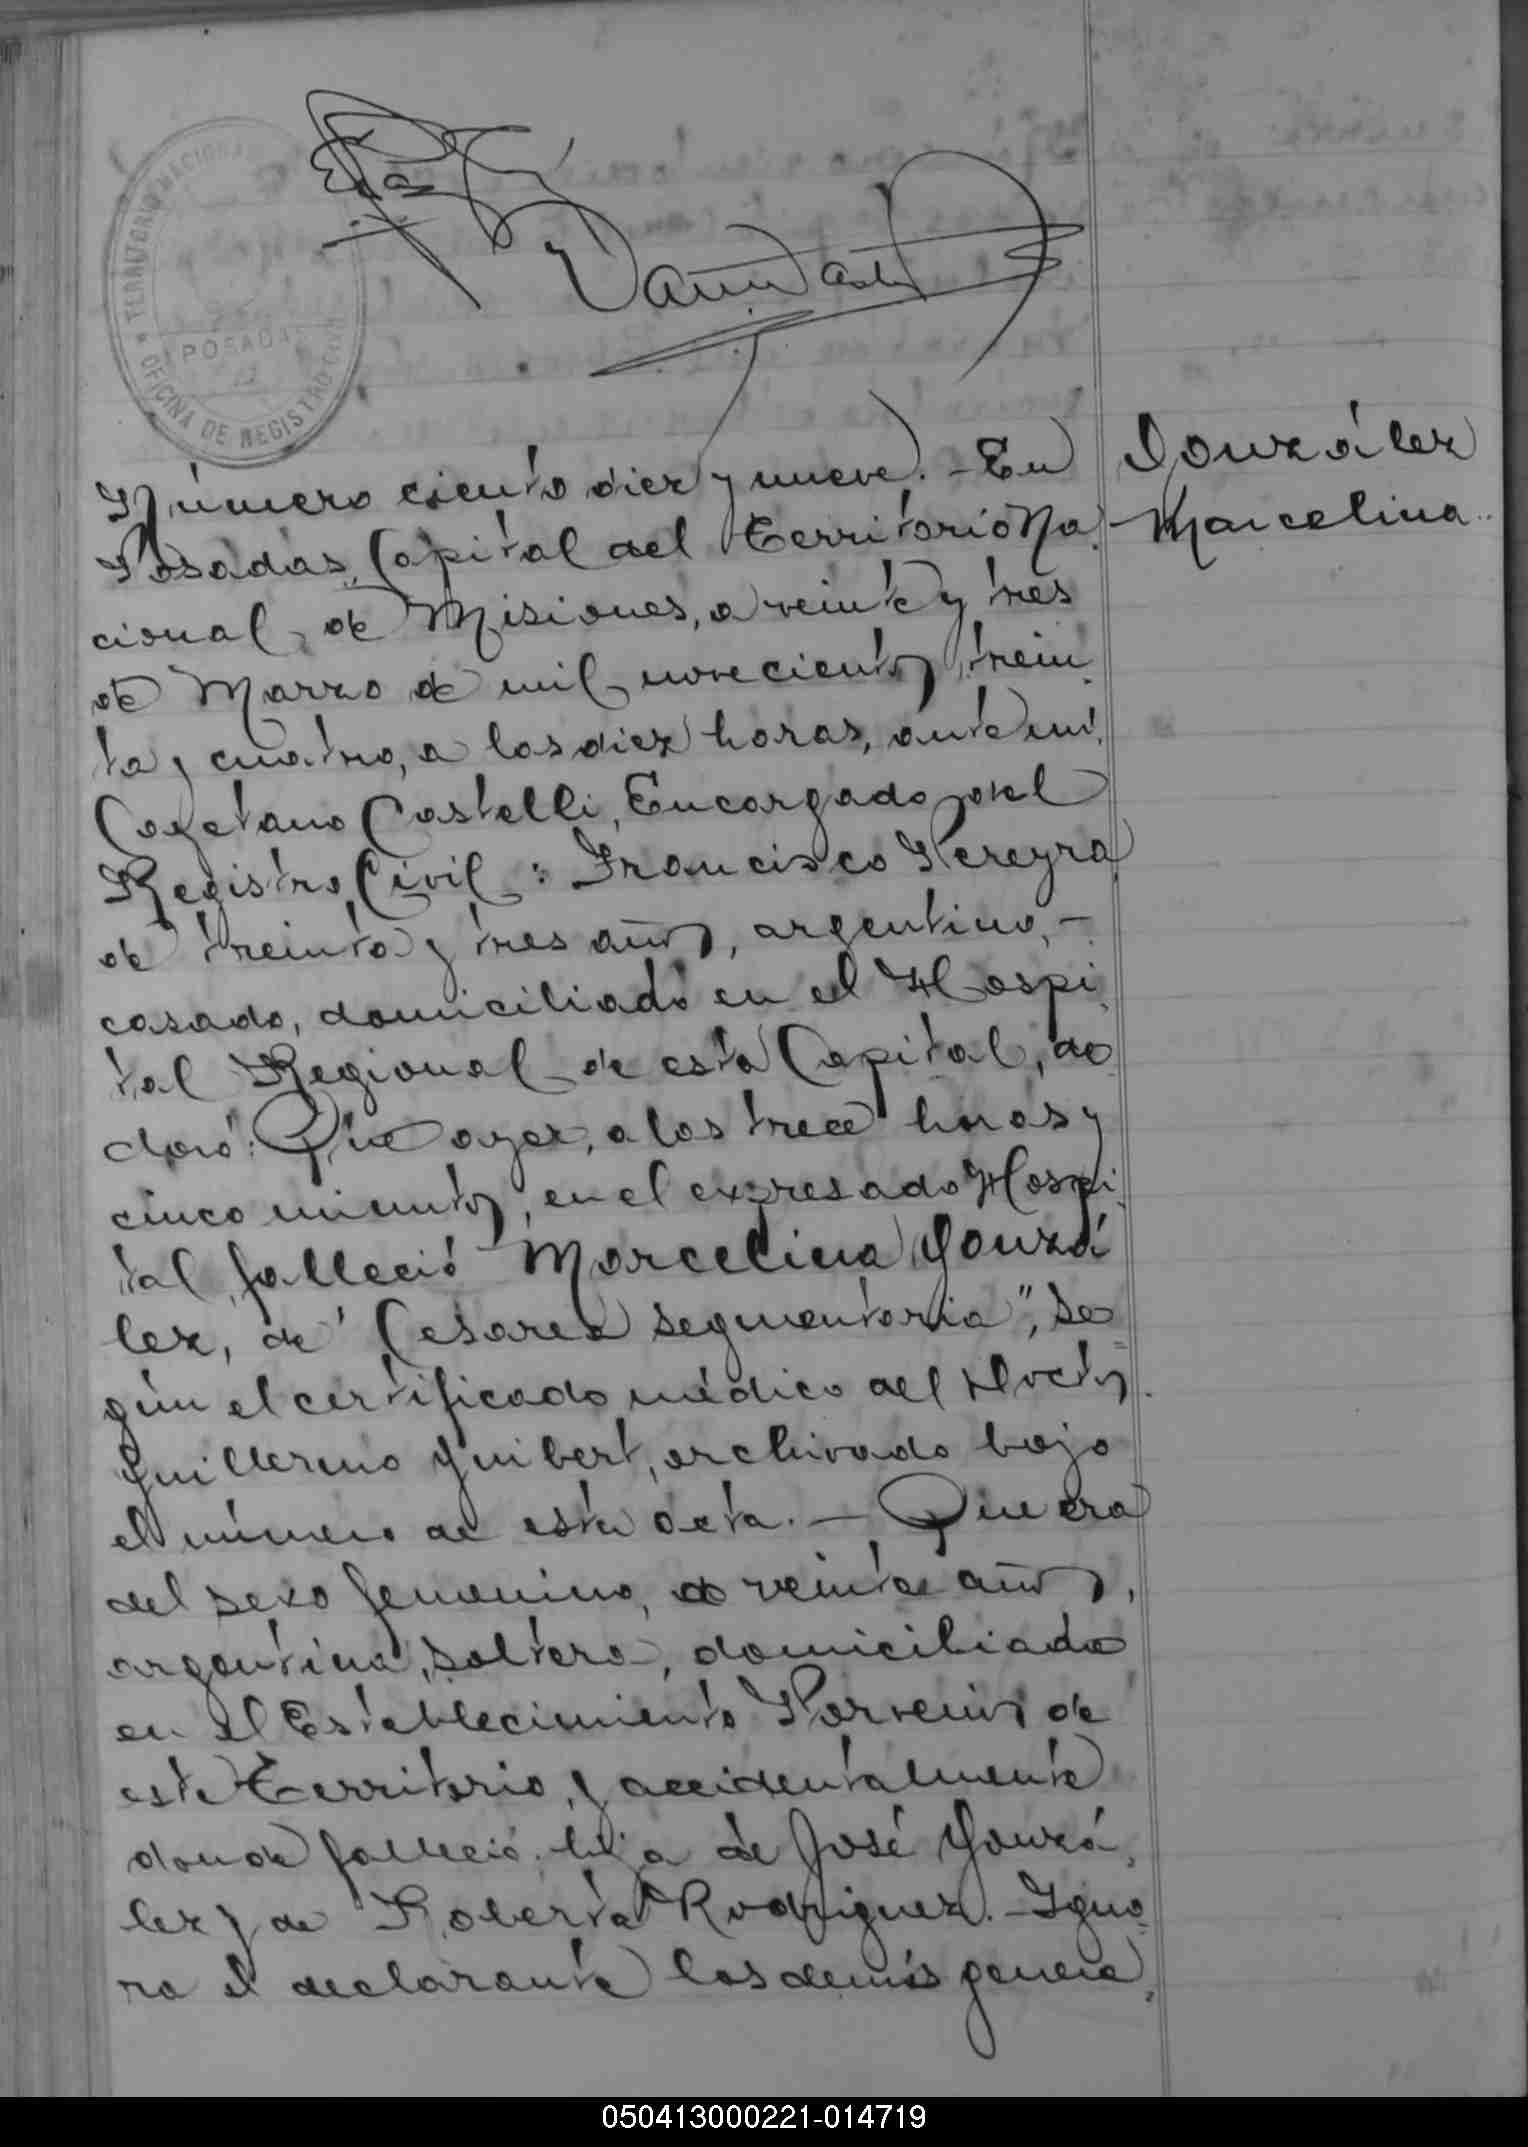 TERRITORIO NACIONAL
POSADAS
OFICINA DE REGISTRO CIVIL
González
Marcelina
Número ciento diez y nueve. - En
Posadas, Capital del Territorio Na-
cional de Misiones, a veinte y tres
de Marzo de mil novecientos trein-
ta y cuatro, a las diez horas, ante mi,
Cayetano Castelli, Encargado del
Registro Civil: Francisco Pereyra,
de treinta y tres años, argentino, -
casado, domiciliado en el Hospi-
tal Regional de esta Capital, de-
claró: Que ayer, a las trece horas y
cinco minutos, en el expresado Hospi-
tal, falleció Marcelina Gonzá-
lez, de "Cesarea segmentaria", se-
gún el certificado médico del Doctor
Guillermo Guibert, archivado bajo
el número de esta acta. - Que era
del sexo femenino, de veinte años,
argentina, soltera, domiciliada
en el Establecimiento Porvenir de
este Territorio, y accidentalmente
donde falleció; hija de José Gonzá-
lez y de Roberta Rodriguez. - Igno-
ra el declarante las demás genera-
050413000221-014719